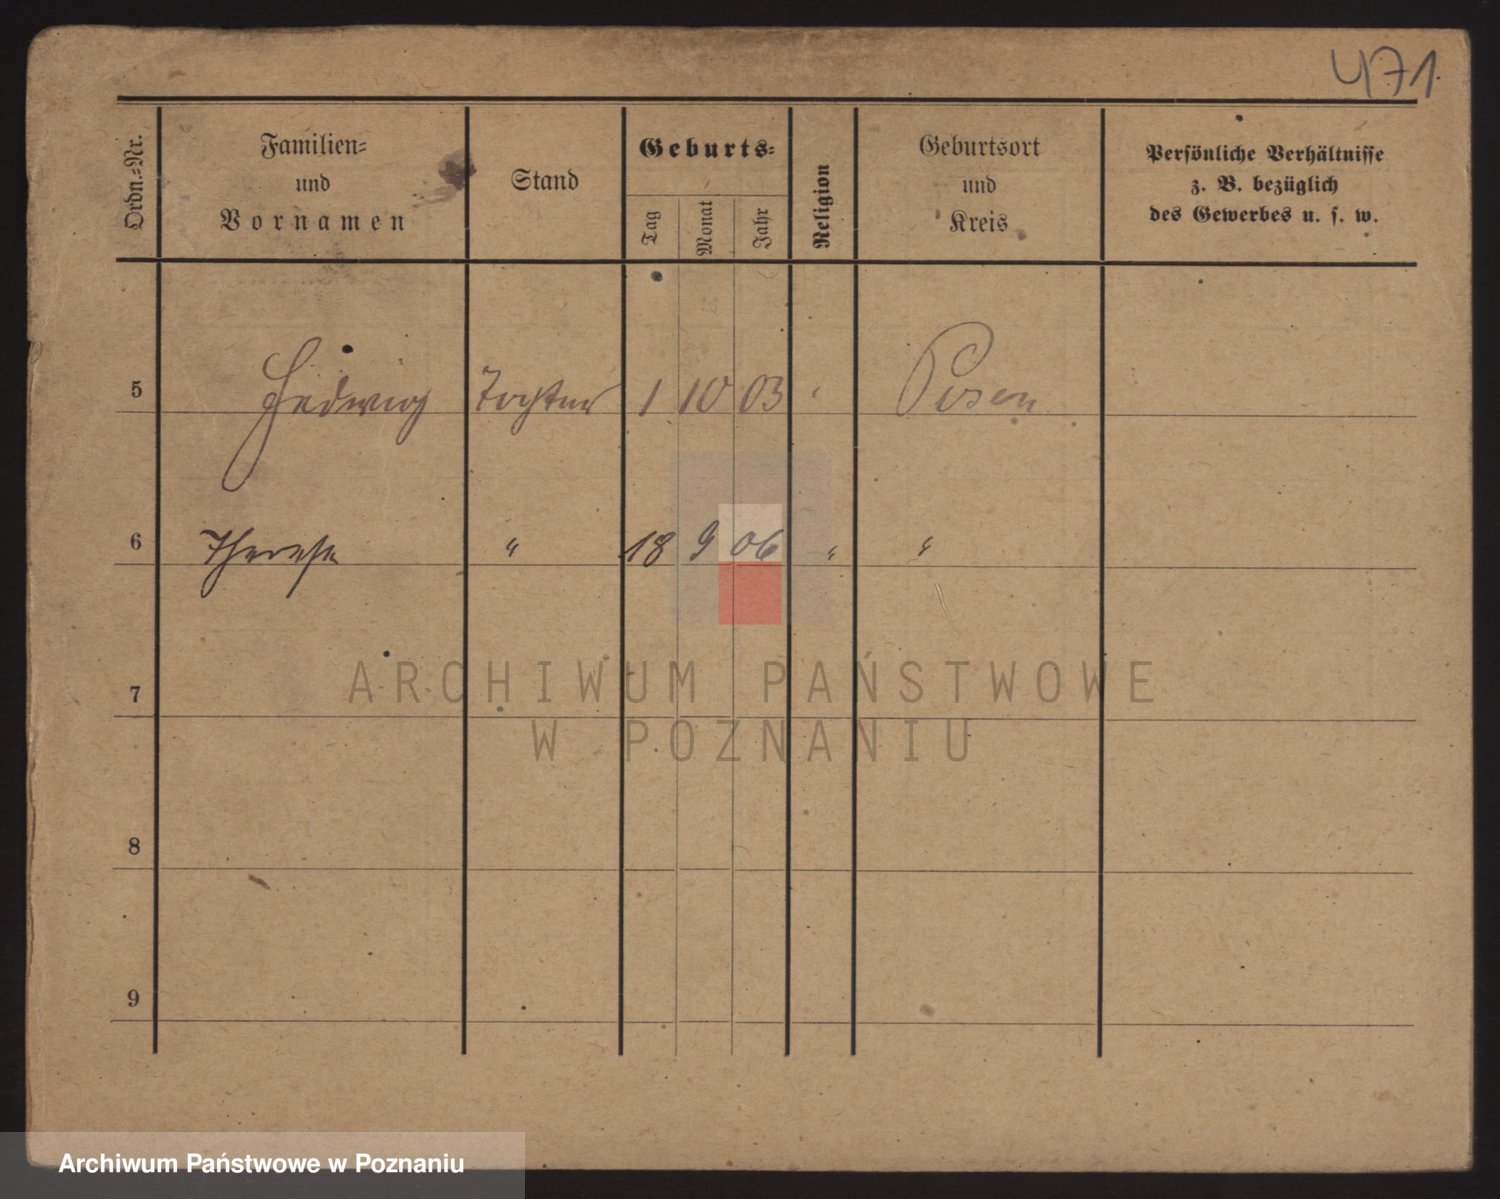 471.
Ordn.-Nr.
Familien-
und
Vornamen
Stand
Geburts-
Tag
Monat
Jahr
Religion
Geburtsort
und
Kreis
Persönliche Verhältnisse
z. B. bezüglich
des Gewerbes u. s. w.
5 Hedwig Tochter 1 10 03 " Posen
6 Therese " 18 9 06 " "
7
8
9
ARCHIWUM PAŃSTWOWE
W POZNANIU
Archiwum Państwowe w Poznaniu